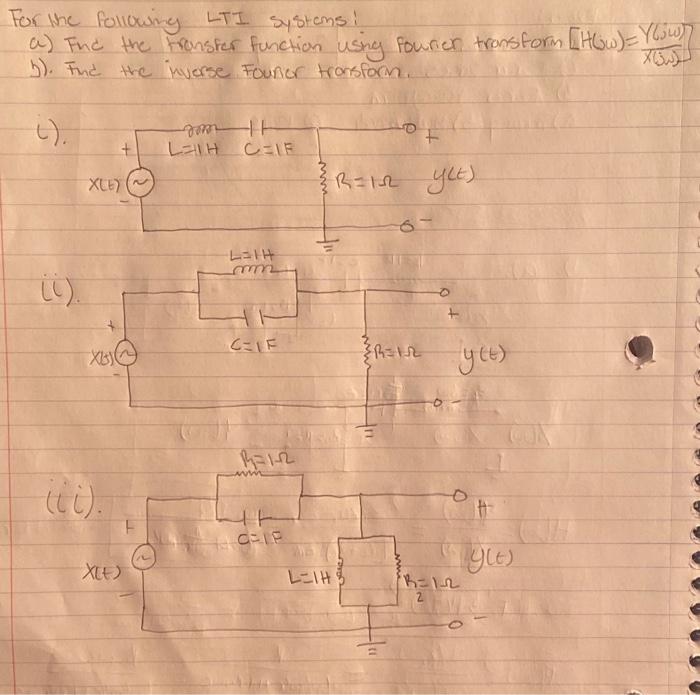 For the following LTI systems!
a) Find the transfer function using fourier transform [H(jw)=Y(jw)/X(jw)]
b). Find the inverse Fourier transform.
i).
L=1H C=1F
+
+
X(t)
R=1Ω
y(t)
-
-
ii).
L=1H
C=1F
+
+
X(t)
R=1Ω
y(t)
-
-
iii).
R=1Ω
C=1F
+
+
X(t)
L=1H
R2=1Ω
y(t)
-
-